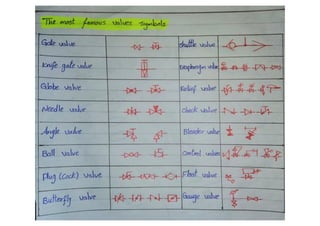 The most famous valves symbols
Gate valve
shuttle valve
Knife gate valve
Diaphragm valve
Globe valve
Relief valve
Needle valve
Check valve
Angle valve
Bleeder valve
Ball valve
Control valve
Plug (Cock) valve
Float valve
Butterfly valve
Gauge valve